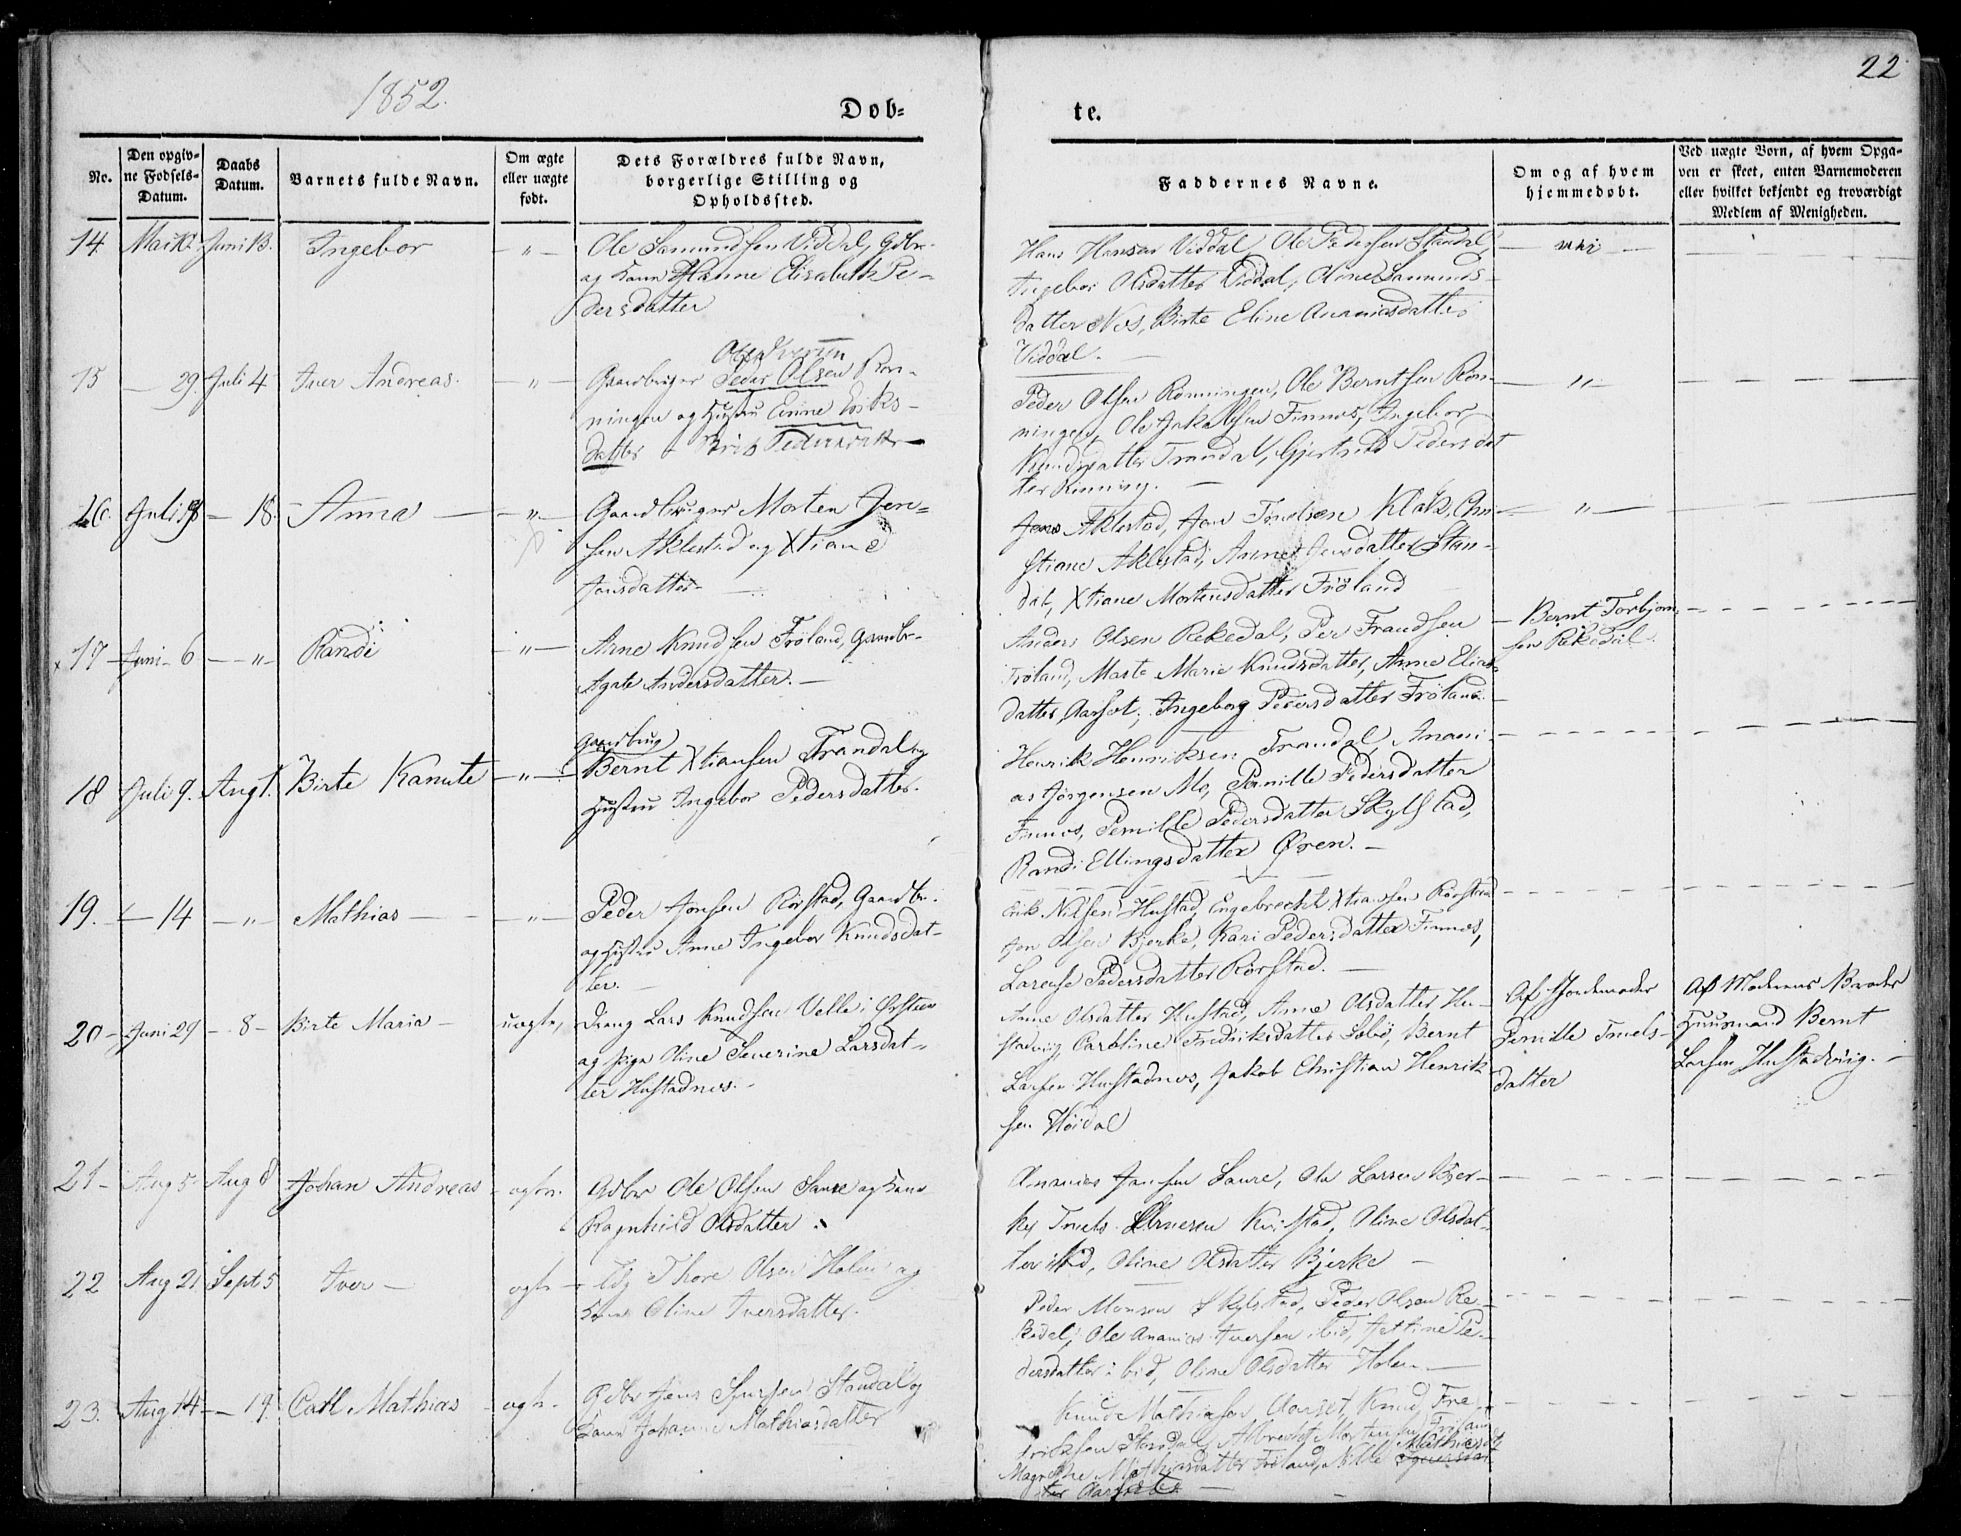 1852.
22
Døb=
te.
No.
Den opgiv-
ne Fødsels-
Datum.
Daabs
Datum.
Barnets fulde Navn.
Om ægte
eller uægte
født.
Dets Forældres fulde Navn,
borgerlige Stilling og
Opholdssted.
Faddernes Navne.
Om og af hvem
hjemmedøbt.
Ved uægte Børn, af hvem Opga-
ven er skeet, enten Barnemoderen
eller hvilket bekjendt og troværdigt
Medlem af Menigheden.
14 Mai Juni 13. Ingebor — " —
Ole Samundsen Viddal, Gdbr.
og Kone Hanne Elisabeth Pe-
dersdatter
Hans Hansen Viddal, Ole Pedersen Standal,
Ingebor Olsdatter Viddal, Oline Samunds-
datter Nes, Birte Eline Ananiasdatter
Viddal. —
15 — 29. Juli 4 Iver Andreas. — " —
Ole Iversen
Gaardbruger Peder Olsen Røn-
ningen og Hustru Anne Eriks-
datter Brit Pedersdatter
Peder Olsen Rønningen, Ole Berntsen Røn-
ningen, Ole Jakobsen Finnes, Ingebor
Knudsdatter Trandal, Gjertrud Pedersdat
ter Rønning. —
— " —
16. Juli — 18. Anna — — " —
Gaardbruger Morten Jen-
sen Aklestad og Xtiane
Jonsdatter —
Jens Aklestad, Jon Truelsen Klok, Chri-
stiane Aklestad, Anne Jensdatter Stan-
dal, Xtiane Mortensdatter Frøland
— " —
x 17 — Juni — 6 — " — Randi — " —
Arne Knudsen Frøland, Gaardbr-
Agate Andersdatter. —
Anders Olsen Rekedal, Per Frandsen
Frøland, Marte Marie Knudsdatter, Anne Elias
datter Aarset, Ingeborg Pedersdatter Frøland.
— Bernt Torbjørn
sen Rekedal
18 Juli 9. Aug 1. Birte Kanute — " —
Gaardbrug
Bernt Xtiansen Trandal og
Hustru Ingebor Pedersdatter.
Henrik Henriksen Trandal, Anani-
as Jørgensen Mo, Pernille Pedersdatter
Finnes, Pernille Pedersdatter Skylstad,
Randi Ellingsdatter Øren. —
19. — 14 — " — Mathias — — " —
Peder Jonsen Rørstad, Gaardbr.
og Hustru Anne Ingebor Knudsdat-
ter. —
Erik Nilsen Hustad, Engebrecht Xtiansen Rørstad
Jon Olsen Bjerke, Kari Pedersdatter Finnes,
Larense Pedersdatter Rørstad. —
20 — Juni 29 — 8 — Birte Maria — uægte,
Dreng Lars Knudsen Velle i Ørsten
og Pige Oline Severine Larsdat-
ter Hustadnes. —
Anne Olsdatter Hustad, Anne Olsdatter Hu-
stadvig Caroline Fredriksdatter Sebø, Bernt
Larsen Hustadnes, Jakob Christian Henrik
sen Høidal
Af Jordemoder
Pernille Truels-
datter
Af Moderens Broder
Huusmand Bernt
Larsen Hustadvig. —
21 — Aug 5. Aug 8 Johan Andreas — ægte.
Gdbr Ole Olsen Saure og Kone
Ragnhild Olsdatter.
Ananias Jonsen Saure, Ole Larsen Bjer-
ke, Truels Arnesen Kurstad, Oline Olsdat-
ter ibid, Oline Olsdatter Bjerke —
22 Aug 21. Sept 5 Iver — ægte —
Thore Olsen Holen og
Kone Oline Iversdatter.
Peder Monsen Skylstad, Peder Olsen Re-
kedal, Ole Ananias Iversen ibid, Jettine Pe-
dersdatter ibid, Oline Olsdatter Holen —
23. Aug 14 — 19. Carl Mathias — ægte.
Gdbr Jens Standal og
Kone Johanne Mathiasdatter
Knud Mathiasen Aarset, Knud Fre-
driksen Standal, Albrecht Mortensen Frøland
Magrethe Mathiasdatter Frøland, Nille Mathiasdt
ter Aarset. —